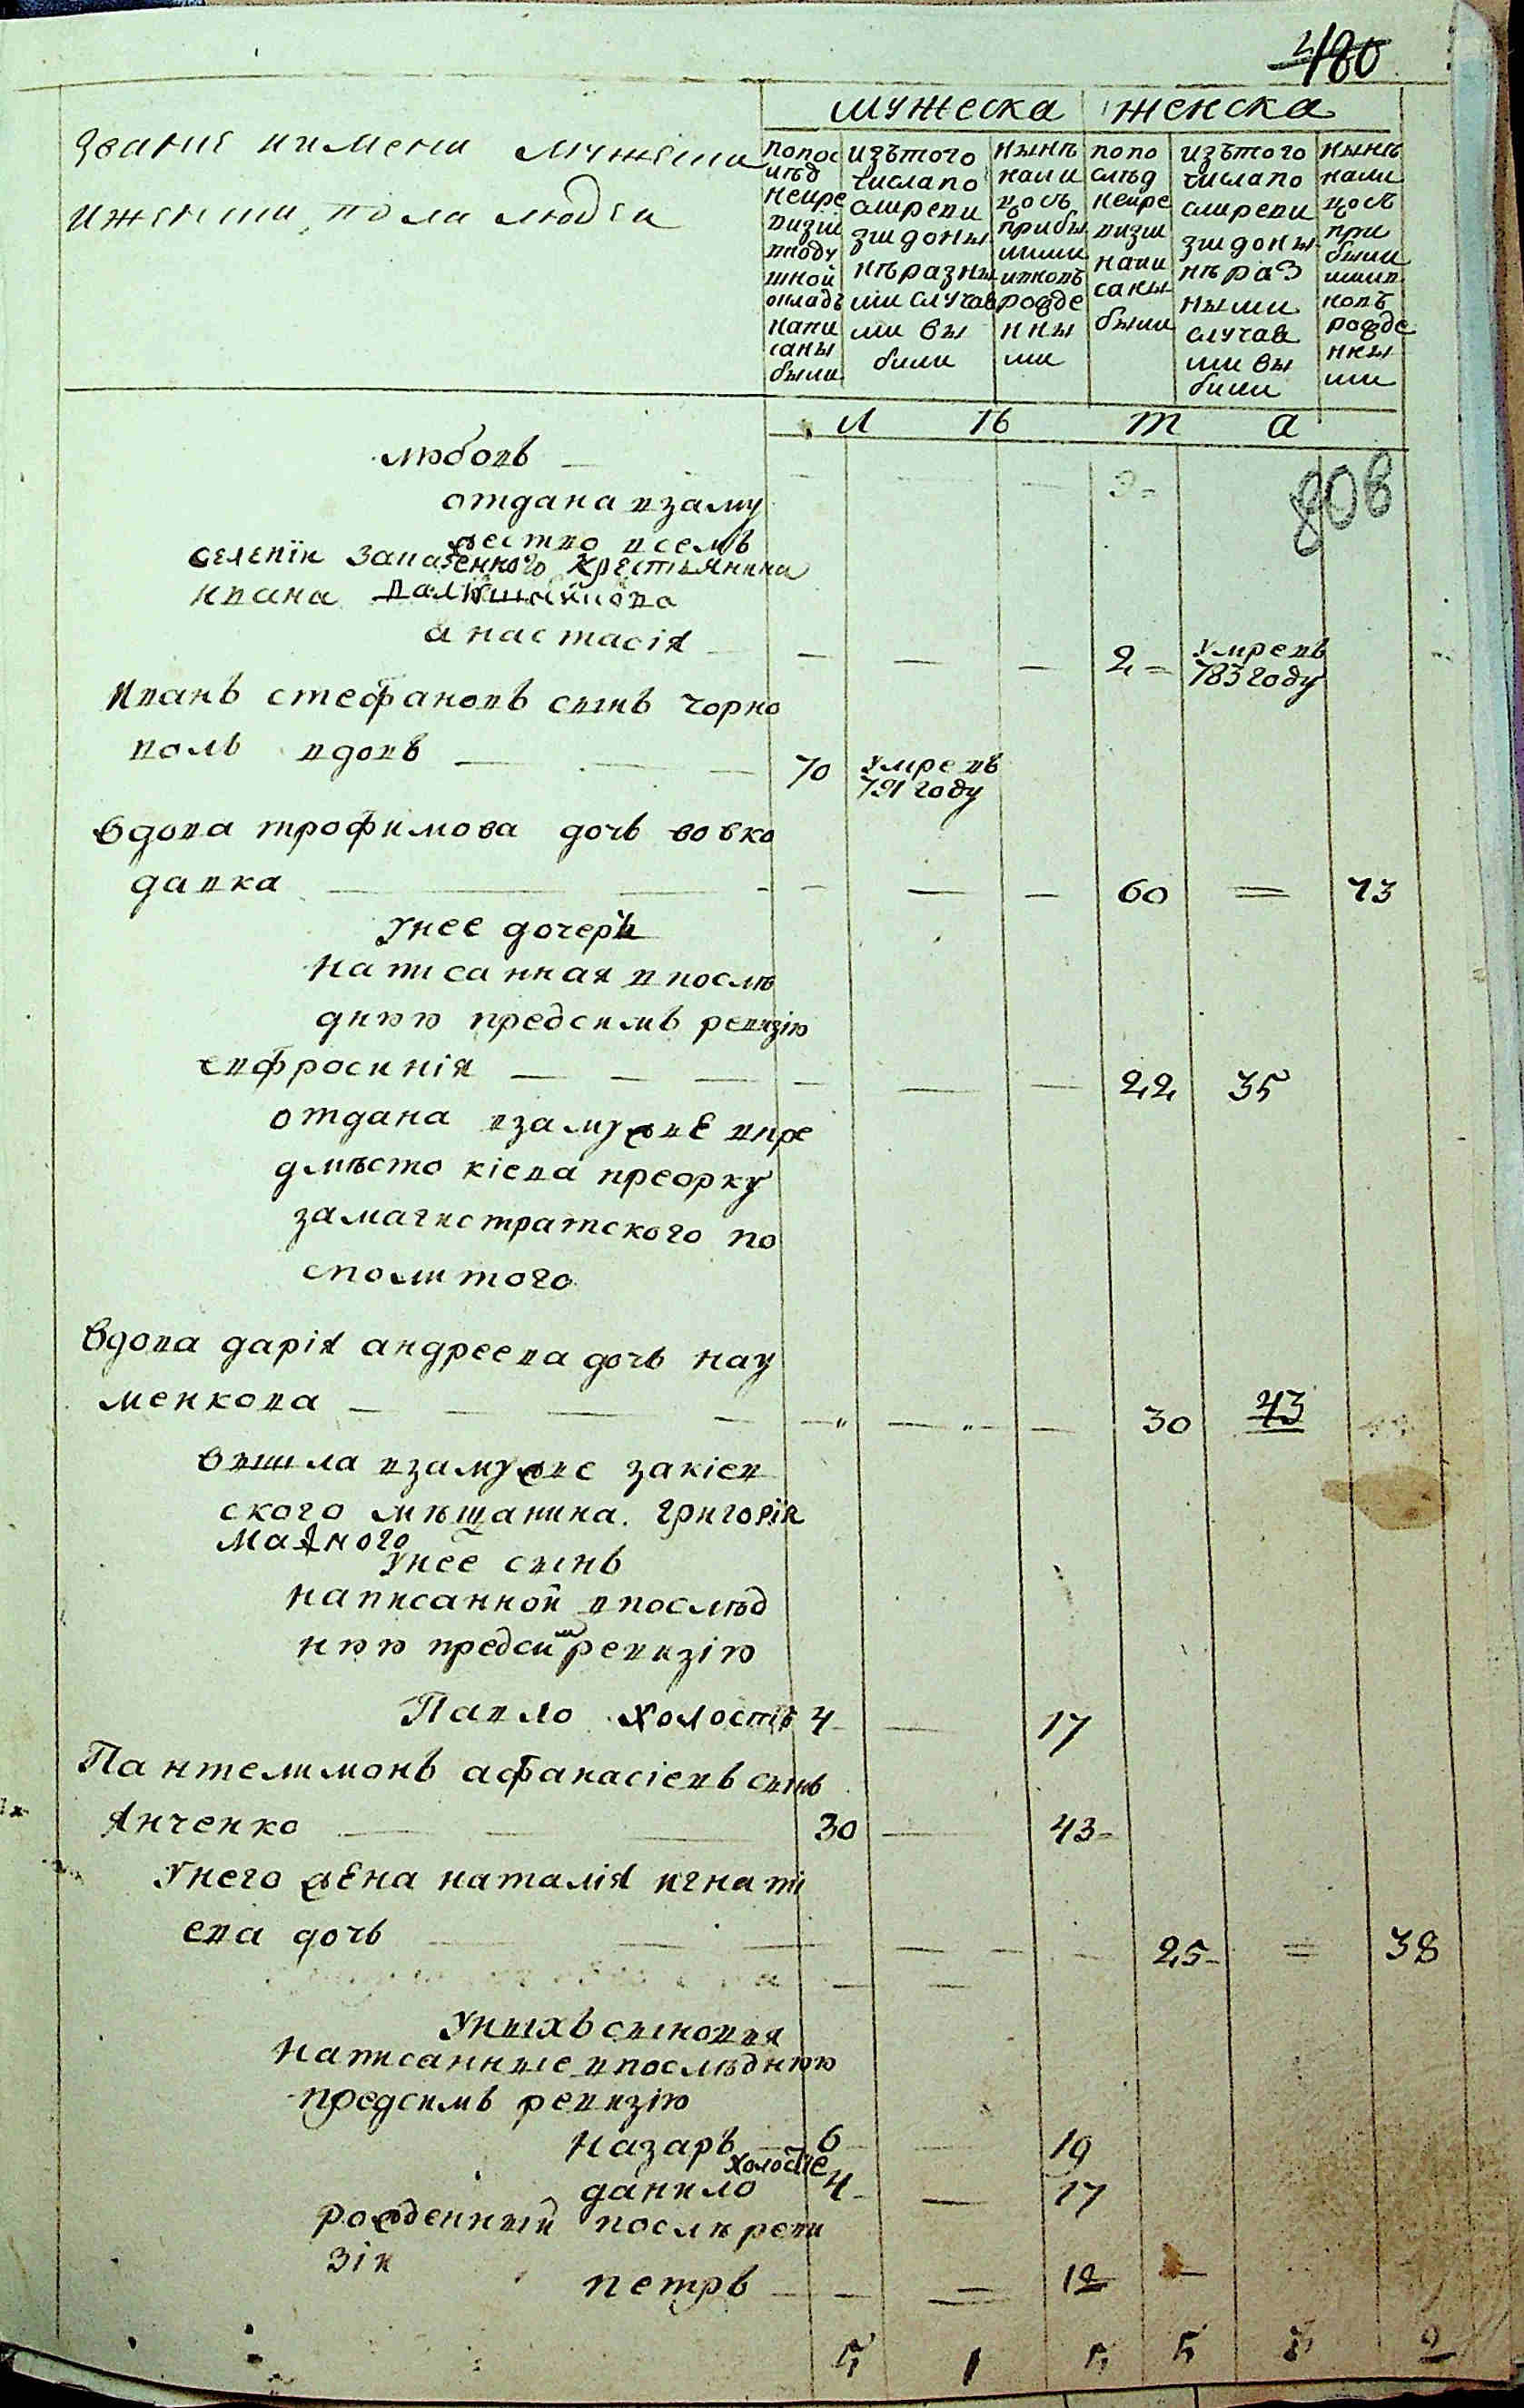 480
мужеска женска
звания иимени мужеши
иженши пола людеи
попос
лѣд
неире
визіи
вподу
шной
окладъ
напи
саны
были
изътого
числапо
слиреви
зіи доны
нѣ разны
ми случая
ми вы
были
нынѣ
нали
цость
прибы
лыми
ивновъ
рожде
нны
ми
попо
слѣд
неире
визіи
напи
саны
были
изътого
числапо
слиреви
зіи доны
нѣ раз
ными
случая
ми вы
были
нынѣ
нали
цость
при
былы
миив
новъ
рожде
нны
ми
л ѣ т а
любовь — — — — 9
808
отдана взаму
жество всемъ
селеніи заказенного крестьянина
ивана
анастасія — — — 2 умре въ
783 году
иванъ стефановъ сынъ чорно
воль вдовъ — 70 умре въ
791 году
вдова трофимова дочь вовко
давка — — — — 60 = 73
унее дочеръ
написанная впослѣ
днюю предсимъ ревизію
евфросинія — — — 22 35
отдана взамужъе впре
дмѣсто кіева преорку
замагистратского по
сполитого
вдова дарія андреева дочь нау
менкова — — — — 30 43
вышла взамужъе закіев
ского мѣщанина григорія
унее сынъ
написанной впослѣд
нюю предсимъ ревизію
Павло холостъ 4 — 17
Пантелимонъ афанасіевъ сынъ
янченко — 30 — 43
унего жена наталія игнаті
ева дочь — — — — 25 = 38
унихъ сыновья
написанные впослѣднюю
предсимъ ревизію
назаръ — 6 — 19
холостіе
данило 4 — 17
рожденный послѣ реви
зіи
петръ — — = 12 —
5 1 5 5 3 2